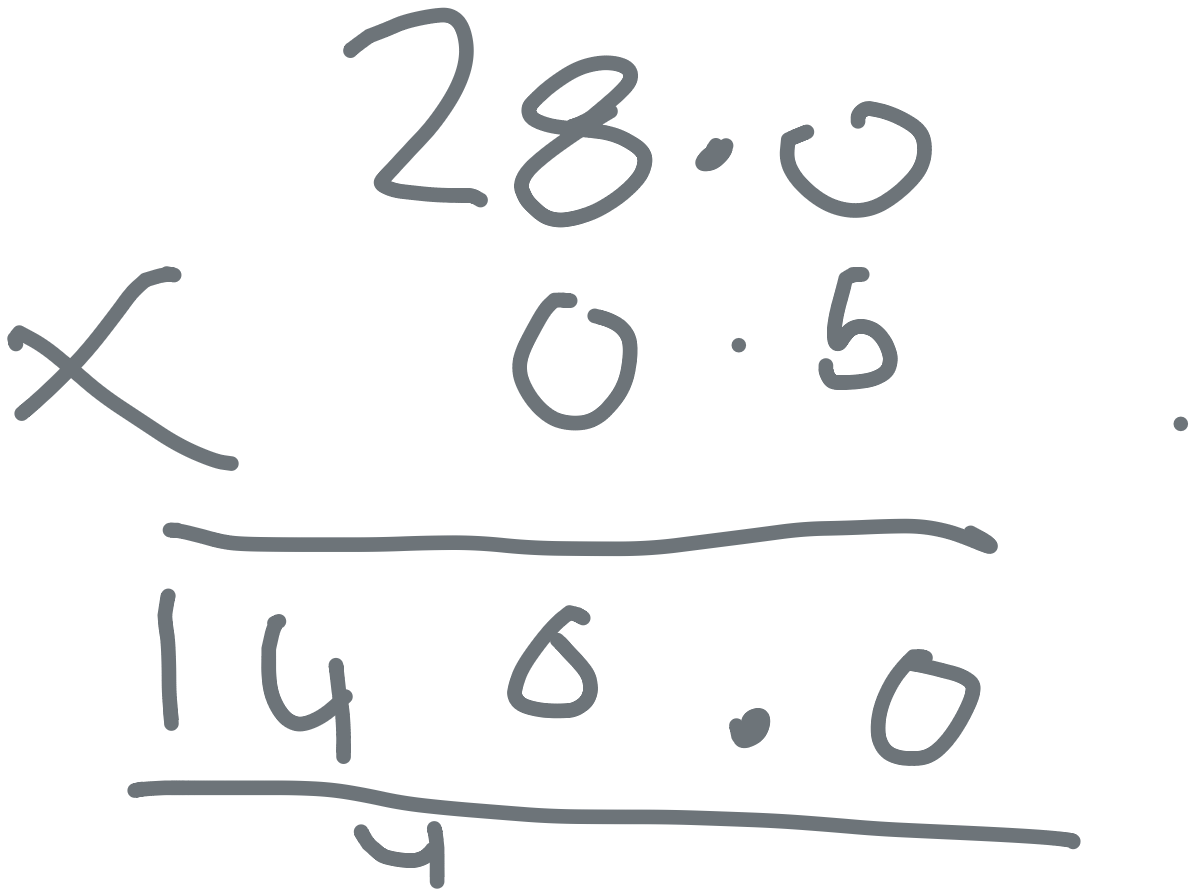 28.0
× 0.5
140.0
4